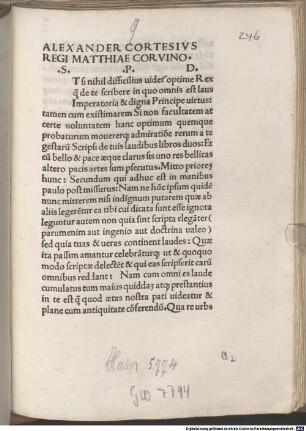 9
246
ALEXANDER CORTESIVS
REGI MATTHIAE CORVINO.
.S. .P. .D.
Tsi nihil difficilius uideť optime Rex
q̃ de te scribere in quo omnis est laus
Imperatoria & digna Principe uirtus:
tamen cum existimarem Si non facultatem at
certe voluntatem hanc optimum quemque
probaturum mouererq; admiratiõe rerum a te
gestarũ Scripsi de tuis laudibus libros duos: Et
cũ bello & pace æque clarus sis uno res bellicas
altero pacis artes sum p̃secutus. Mitto priorẽ
hunc: Secundum qui adhuc est in manibus
paulo post missurus: Nam ne hũc ipsum quidẽ
nunc mitterem nisi indignum putarem quæ ab
aliis legerẽtur ea tibi cui dicata sunt esse ignota
leguntur autem non quia sint scripta elegãter (
parum enim aut ingenio aut doctrina ualeo)
sed quia tuas & ueras continent laudes: Quæ
ita passim amantur celebrãturq; ut & quoquo
modo scriptæ delectẽt & qui eas scripserit carũ
omnibus reddant: Nam cum omni es laude
cumulatus tum maius quiddã atq; prestantius
in te est q̃ quod ætas nostra pati uideatur &
plane cum antiquitate cõferendũ. Qua re urbs
a2
Hain 5774
GW 7794